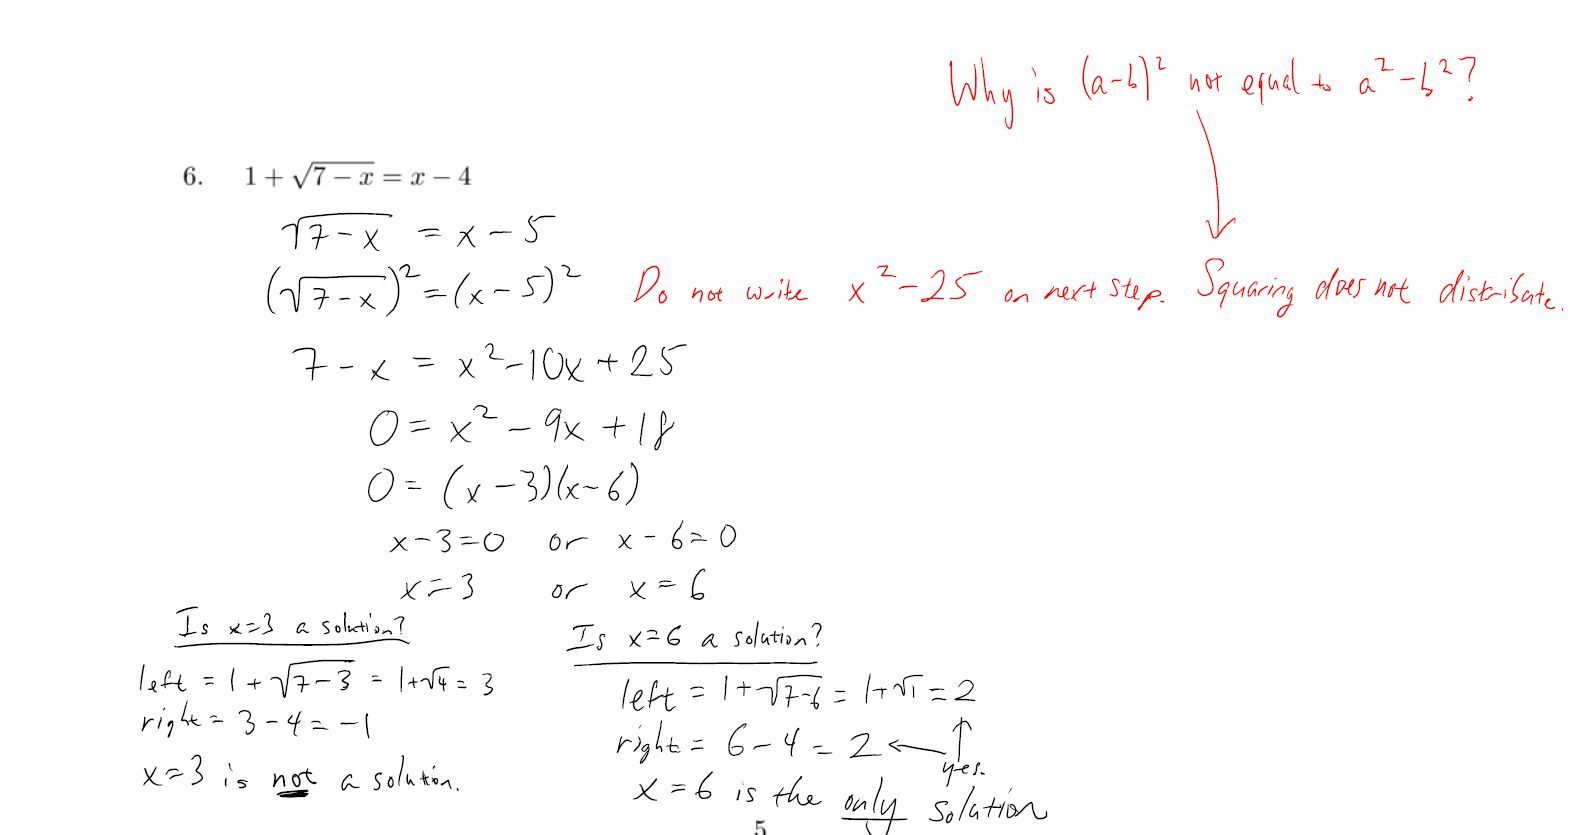 Why is (a-b)² not equal to a²-b²?
6. 1 + √(7 − x) = x − 4
√(7-x) = x - 5
(√(7-x))² = (x-5)² Do not write x²-25 on next step. Squaring does not distribute.
7 - x = x² -10x + 25
0 = x² - 9x + 18
0 = (x-3)(x-6)
x-3=0 or x-6=0
x=3 or x=6
Is x=3 a solution?
left = 1+√(7-3) = 1+√4 = 3
right = 3-4 = -1
x=3 is not a solution.
Is x=6 a solution?
left = 1+√(7-6) = 1+√1 = 2
right = 6-4 = 2
yes.
x=6 is the only solution
5